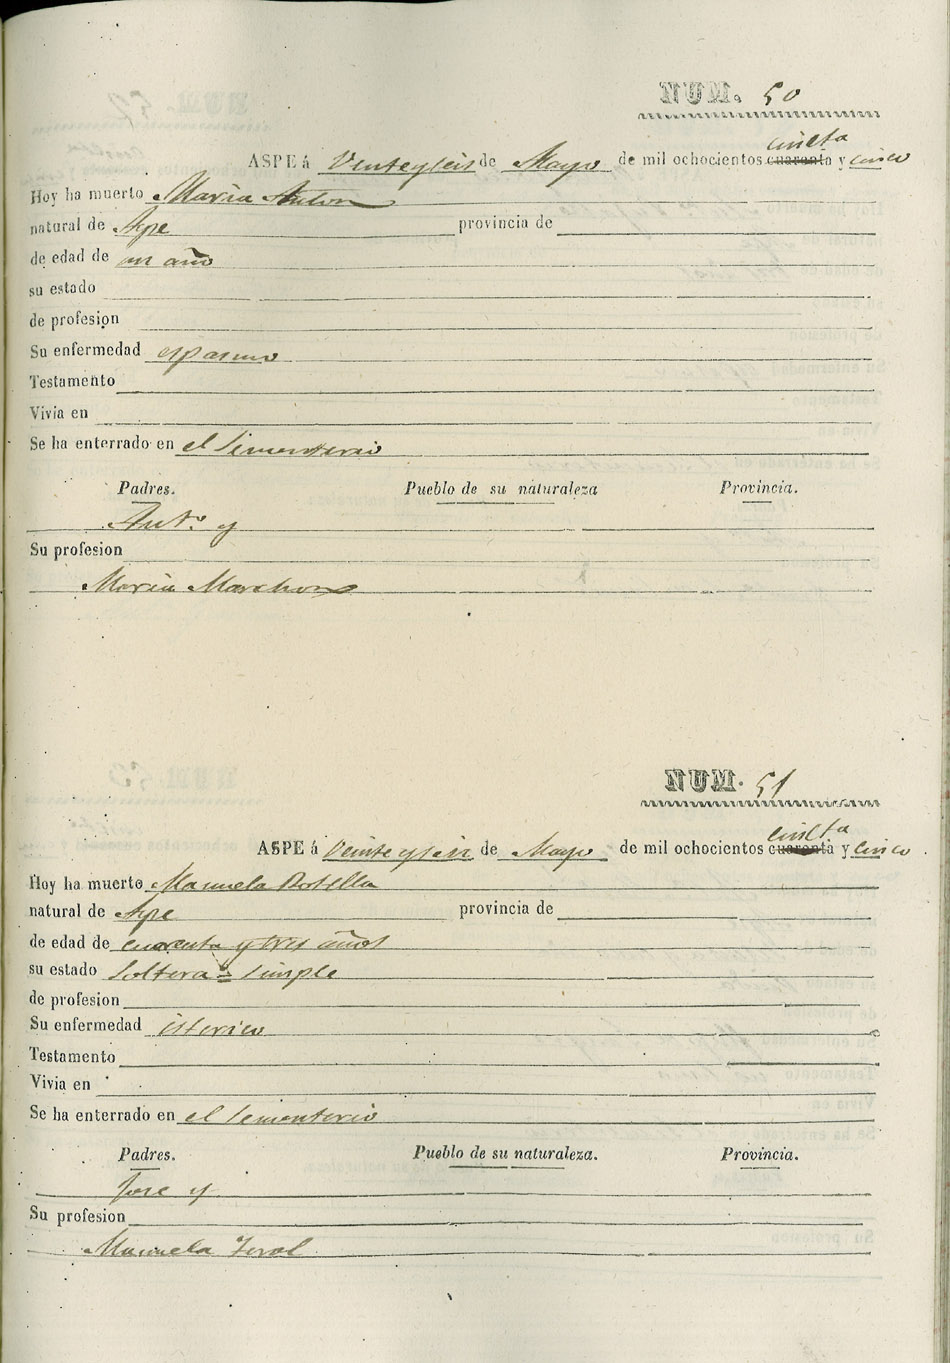 NUM. 50
cincta
ASPE á Veinteyseis de Mayo de mil ochocientos cuarenta y cinco
Hoy ha muerto Maria Anton
natural de Aspe provincia de
de edad de un año
su estado
de profesion
Su enfermedad espasmo
Testamento
Vivía en
Se ha enterrado en el Sementerio
Padres. Pueblo de su naturaleza Provincia.
Anto. y
Su profesion
Maria
NUM. 51
cincta
ASPE á Veinte y seis de Mayo de mil ochocientos cuarenta y cinco
Hoy ha muerto Manuela Botella
natural de Aspe provincia de
de edad de cuarenta y tres años
su estado Soltera = Simple
de profesion
Su enfermedad isterico
Testamento
Vivia en
Se ha enterrado en el Sementerio
Padres. Pueblo de su naturaleza. Provincia.
Jose y
Su profesion
Manuela